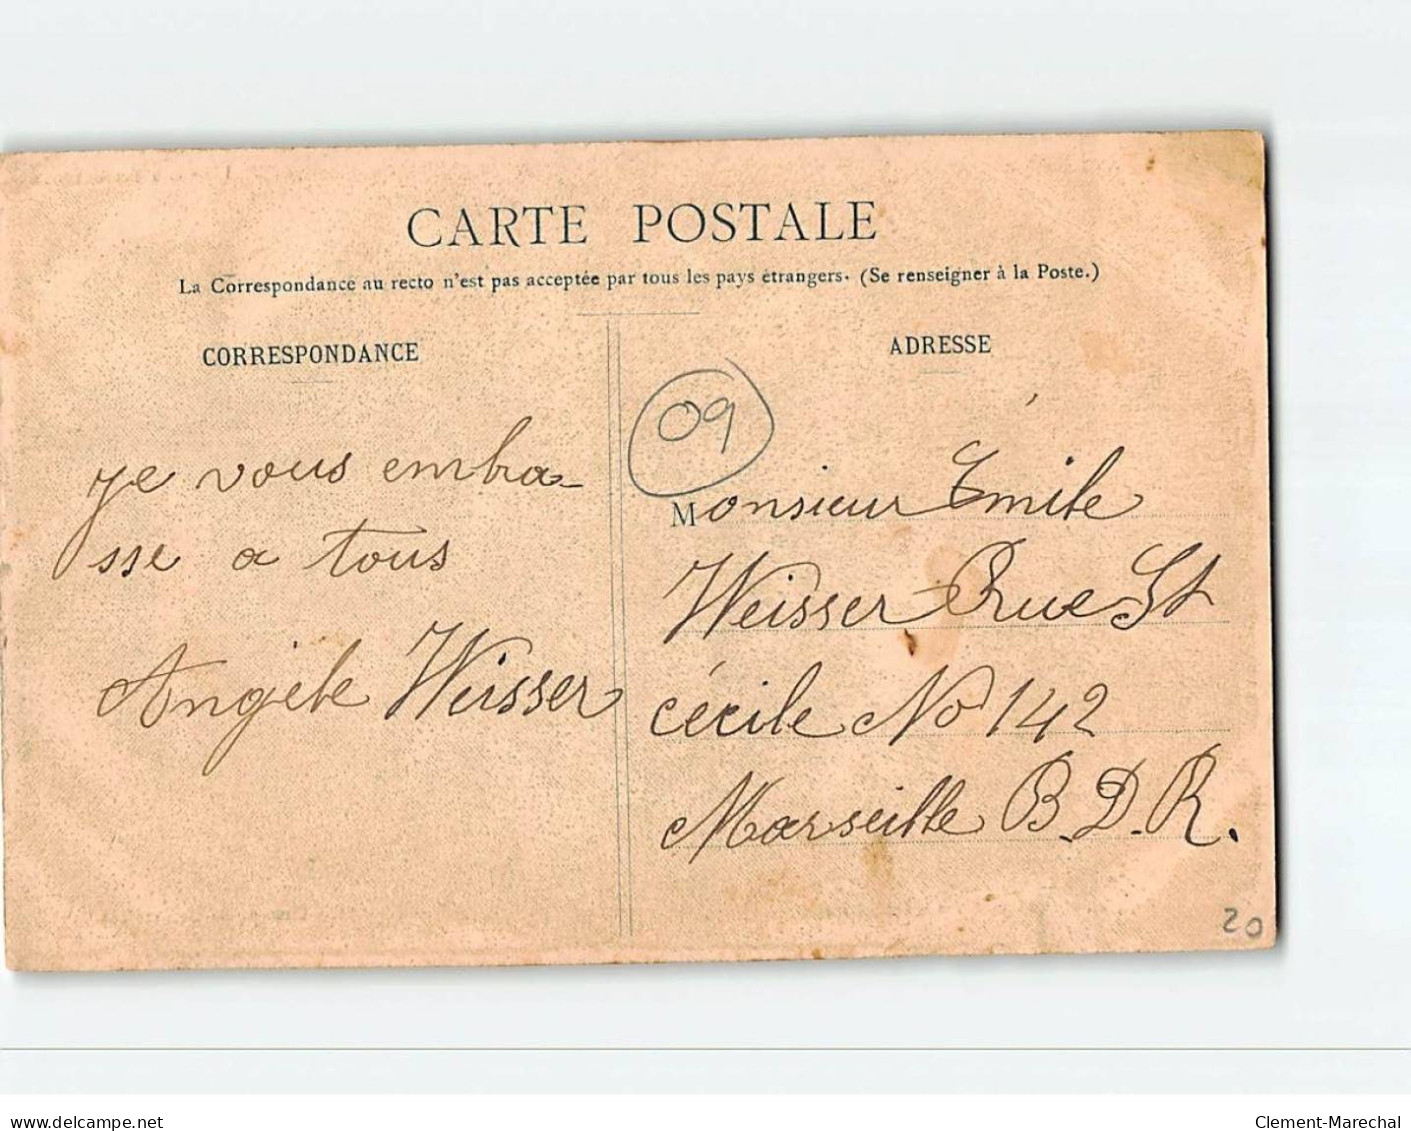 CARTE POSTALE
La Correspondance au recto n'est pas acceptée par tous les pays étrangers. (Se renseigner à la Poste.)
CORRESPONDANCE
je vous embra-
sse a tous
Angèle Weisser
ADRESSE
09
Monsieur Émile
Weisser Rue St
Cécile No 142
Marseille B.D.R.
20
www.delcampe.net
Clement-Marechal